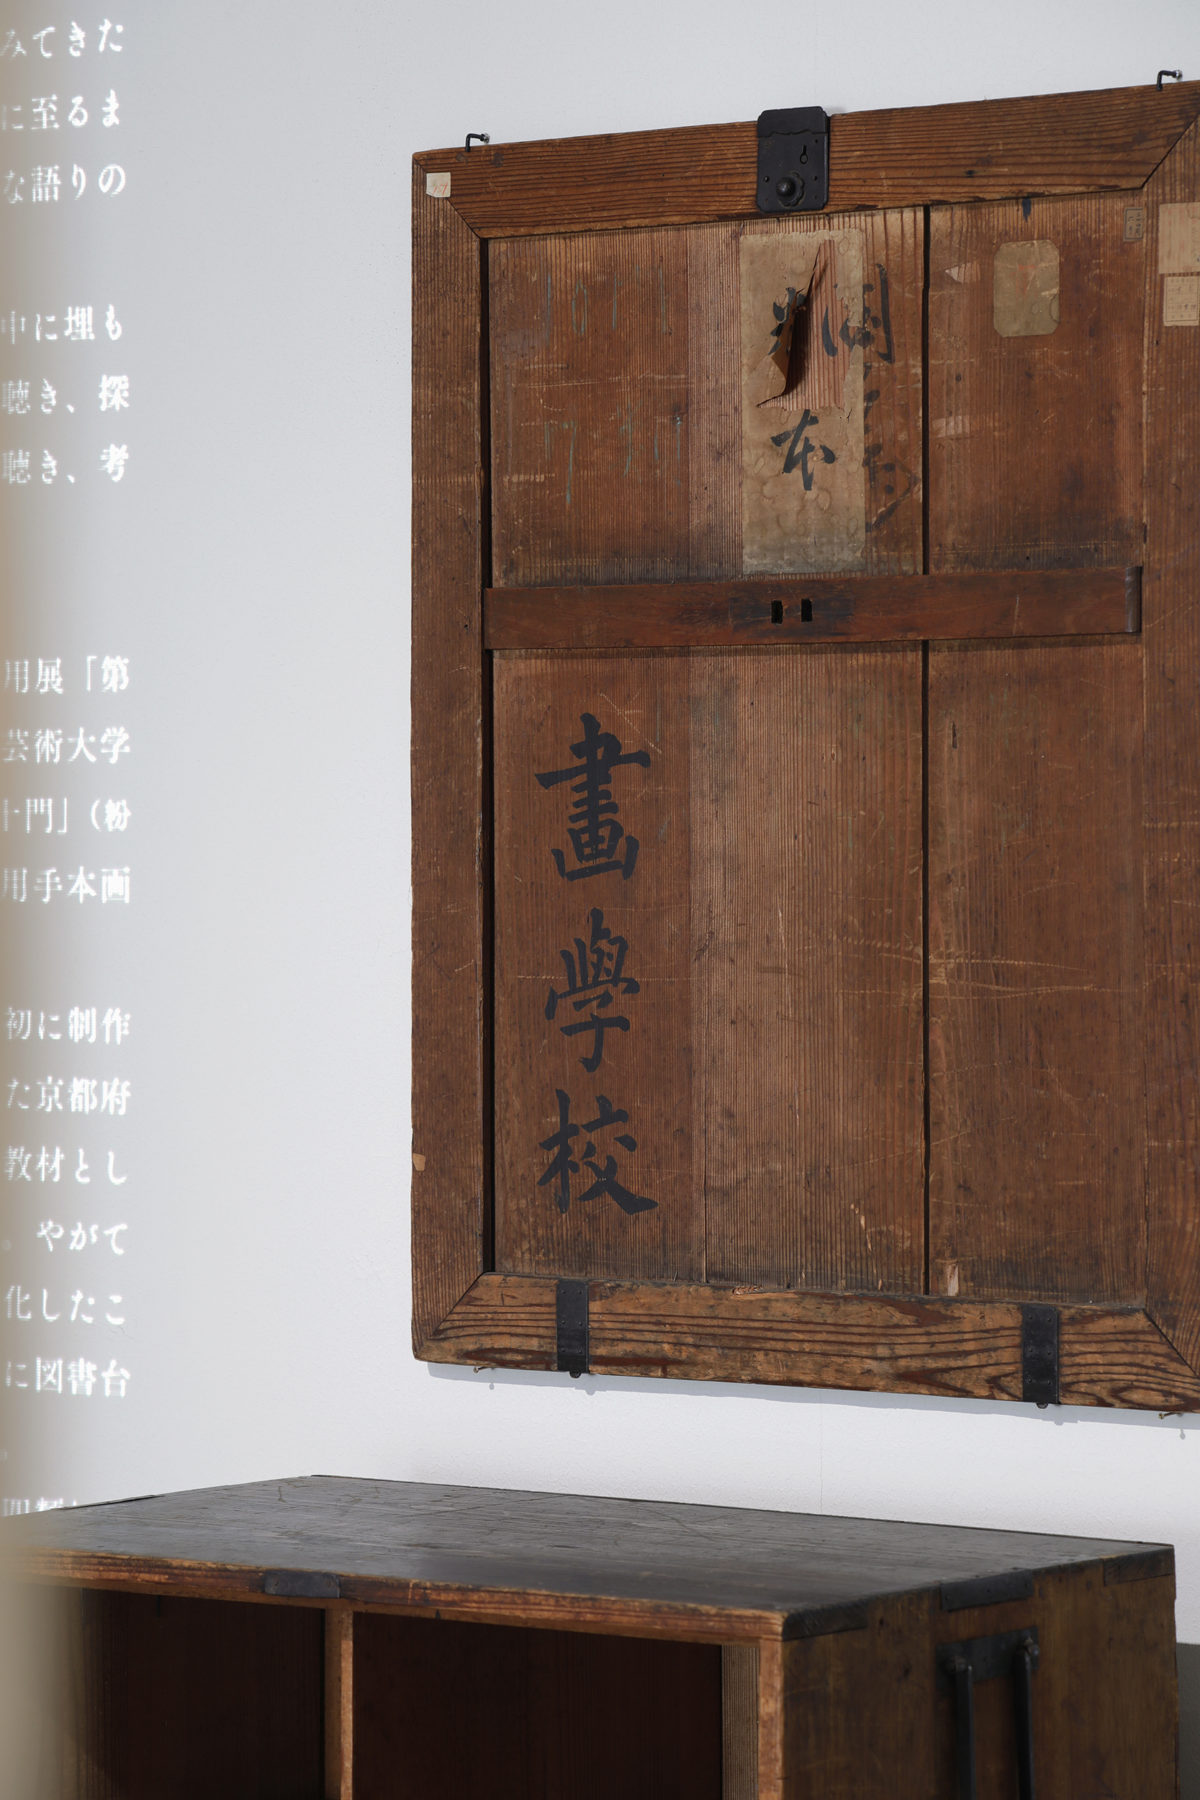 みてきた
に至るま
な語りの
中に埋も
聴き、探
聴き、考
用展「第
芸術大学
門」（粉
用手本画
初に制作
た京都府
教材とし
。やがて
化したこ
に図書台
本
畫學校